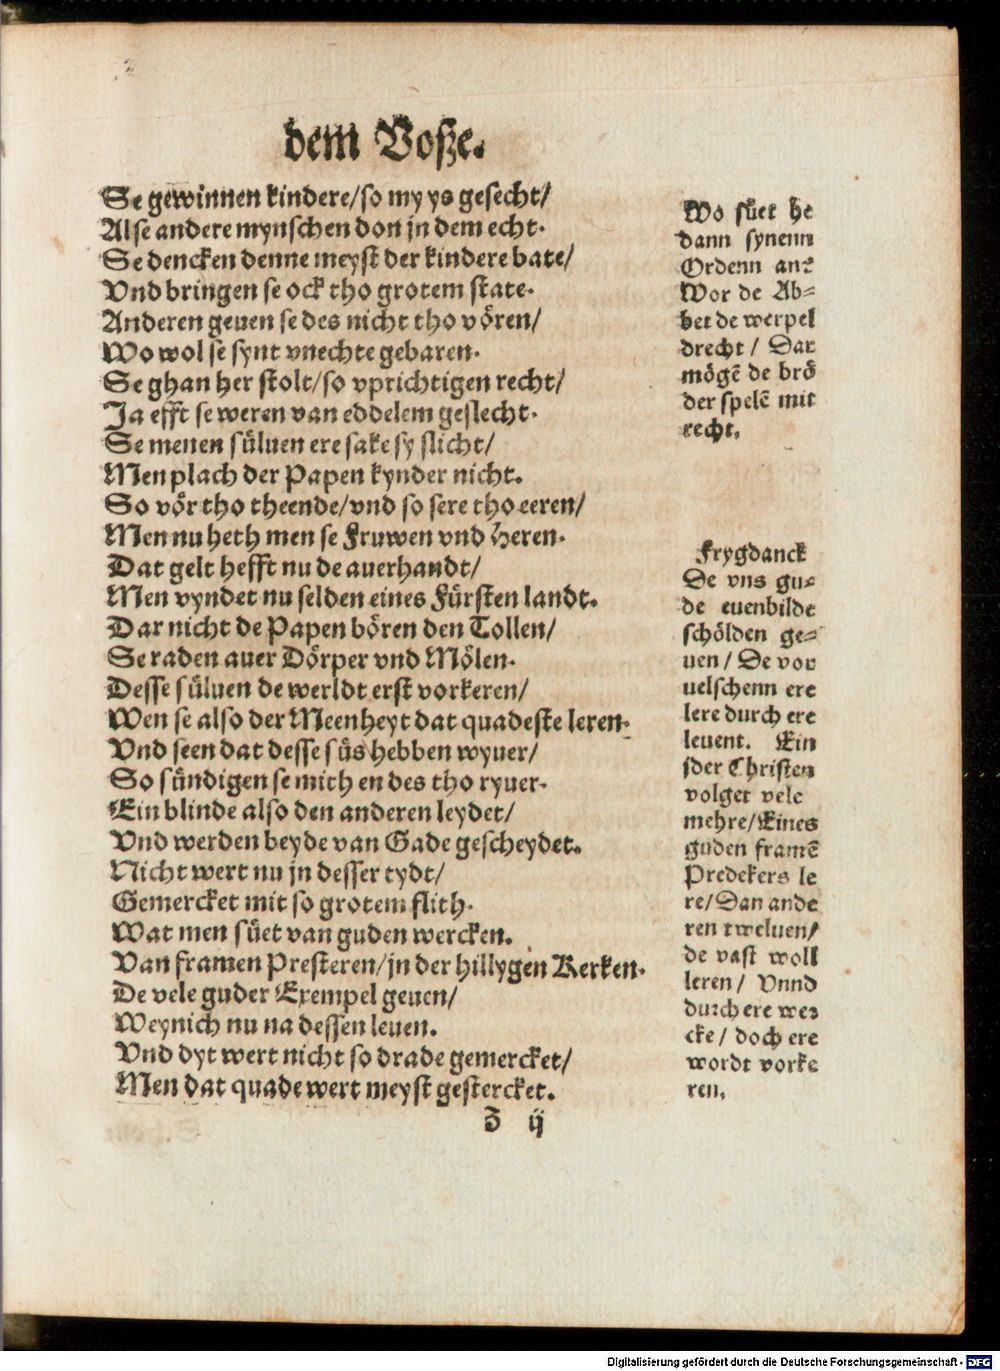 dem Voße.
Se gewinnen kindere/so my ys gesecht/
Alse andere mynschen don jn dem echt.
Se dencken denne meyst der kindere bate/
Vnd bringen se ock tho grotem state.
Anderen geuen se des nicht tho vören/
Wo wol se synt vnechte gebaren.
Se ghan her stolt/so vprichtigen recht/
Ja efft se weren van eddelem geslecht.
Se menen süluen ere sake sy slicht/
Men plach der Papen kynder nicht.
So vör tho theende/vnd so sere tho eeren/
Men nu heth men se Fruwen vnd Heren.
Dat gelt hefft nu de auerhandt/
Men vyndet nu selden eines Fürsten landt.
Dar nicht de Papen bören den Tollen/
Se raden auer Dörper vnd Mölen.
Desse süluen de werldt erst vorkeren/
Wen se also der Meenheyt dat quadeste leren.
Vnd seen dat desse süs hebben wyuer/
So sündigen se mith en des tho ryuer.
Ein blinde also den anderen leydet/
Vnd werden beyde van Gade gescheydet.
Nicht wert nu jn desser tydt/
Gemercket mit so grotem flith.
Wat men süet van guden wercken.
Van framen Presteren/jn der hillygen Kerken.
De vele guder Exempel geuen/
Weynich nu na dessen leuen.
Vnd dyt wert nicht so drade gemercket/
Men dat quade wert meyst gestercket.
Z ij
Wo süet he
dann synenn
Ordenn an?
Wor de Ab-
bet de werpel
drecht / Dar
mögē de brö
der spelē mit
recht.
Frygdanck
De vns gu-
de euenbilde
schölden ge-
uen / De vor
uelschenn ere
lere durch ere
leuent. Ein
jder Christen
volget vele
mehre/Eines
guden framē
Predekers le
re/Dan ande
ren tweluen/
de vast woll
leren / Vnnd
durch ere wer
cke / doch ere
wordt vorke
ren.
Digitalisierung gefördert durch die Deutsche Forschungsgemeinschaft - DFG